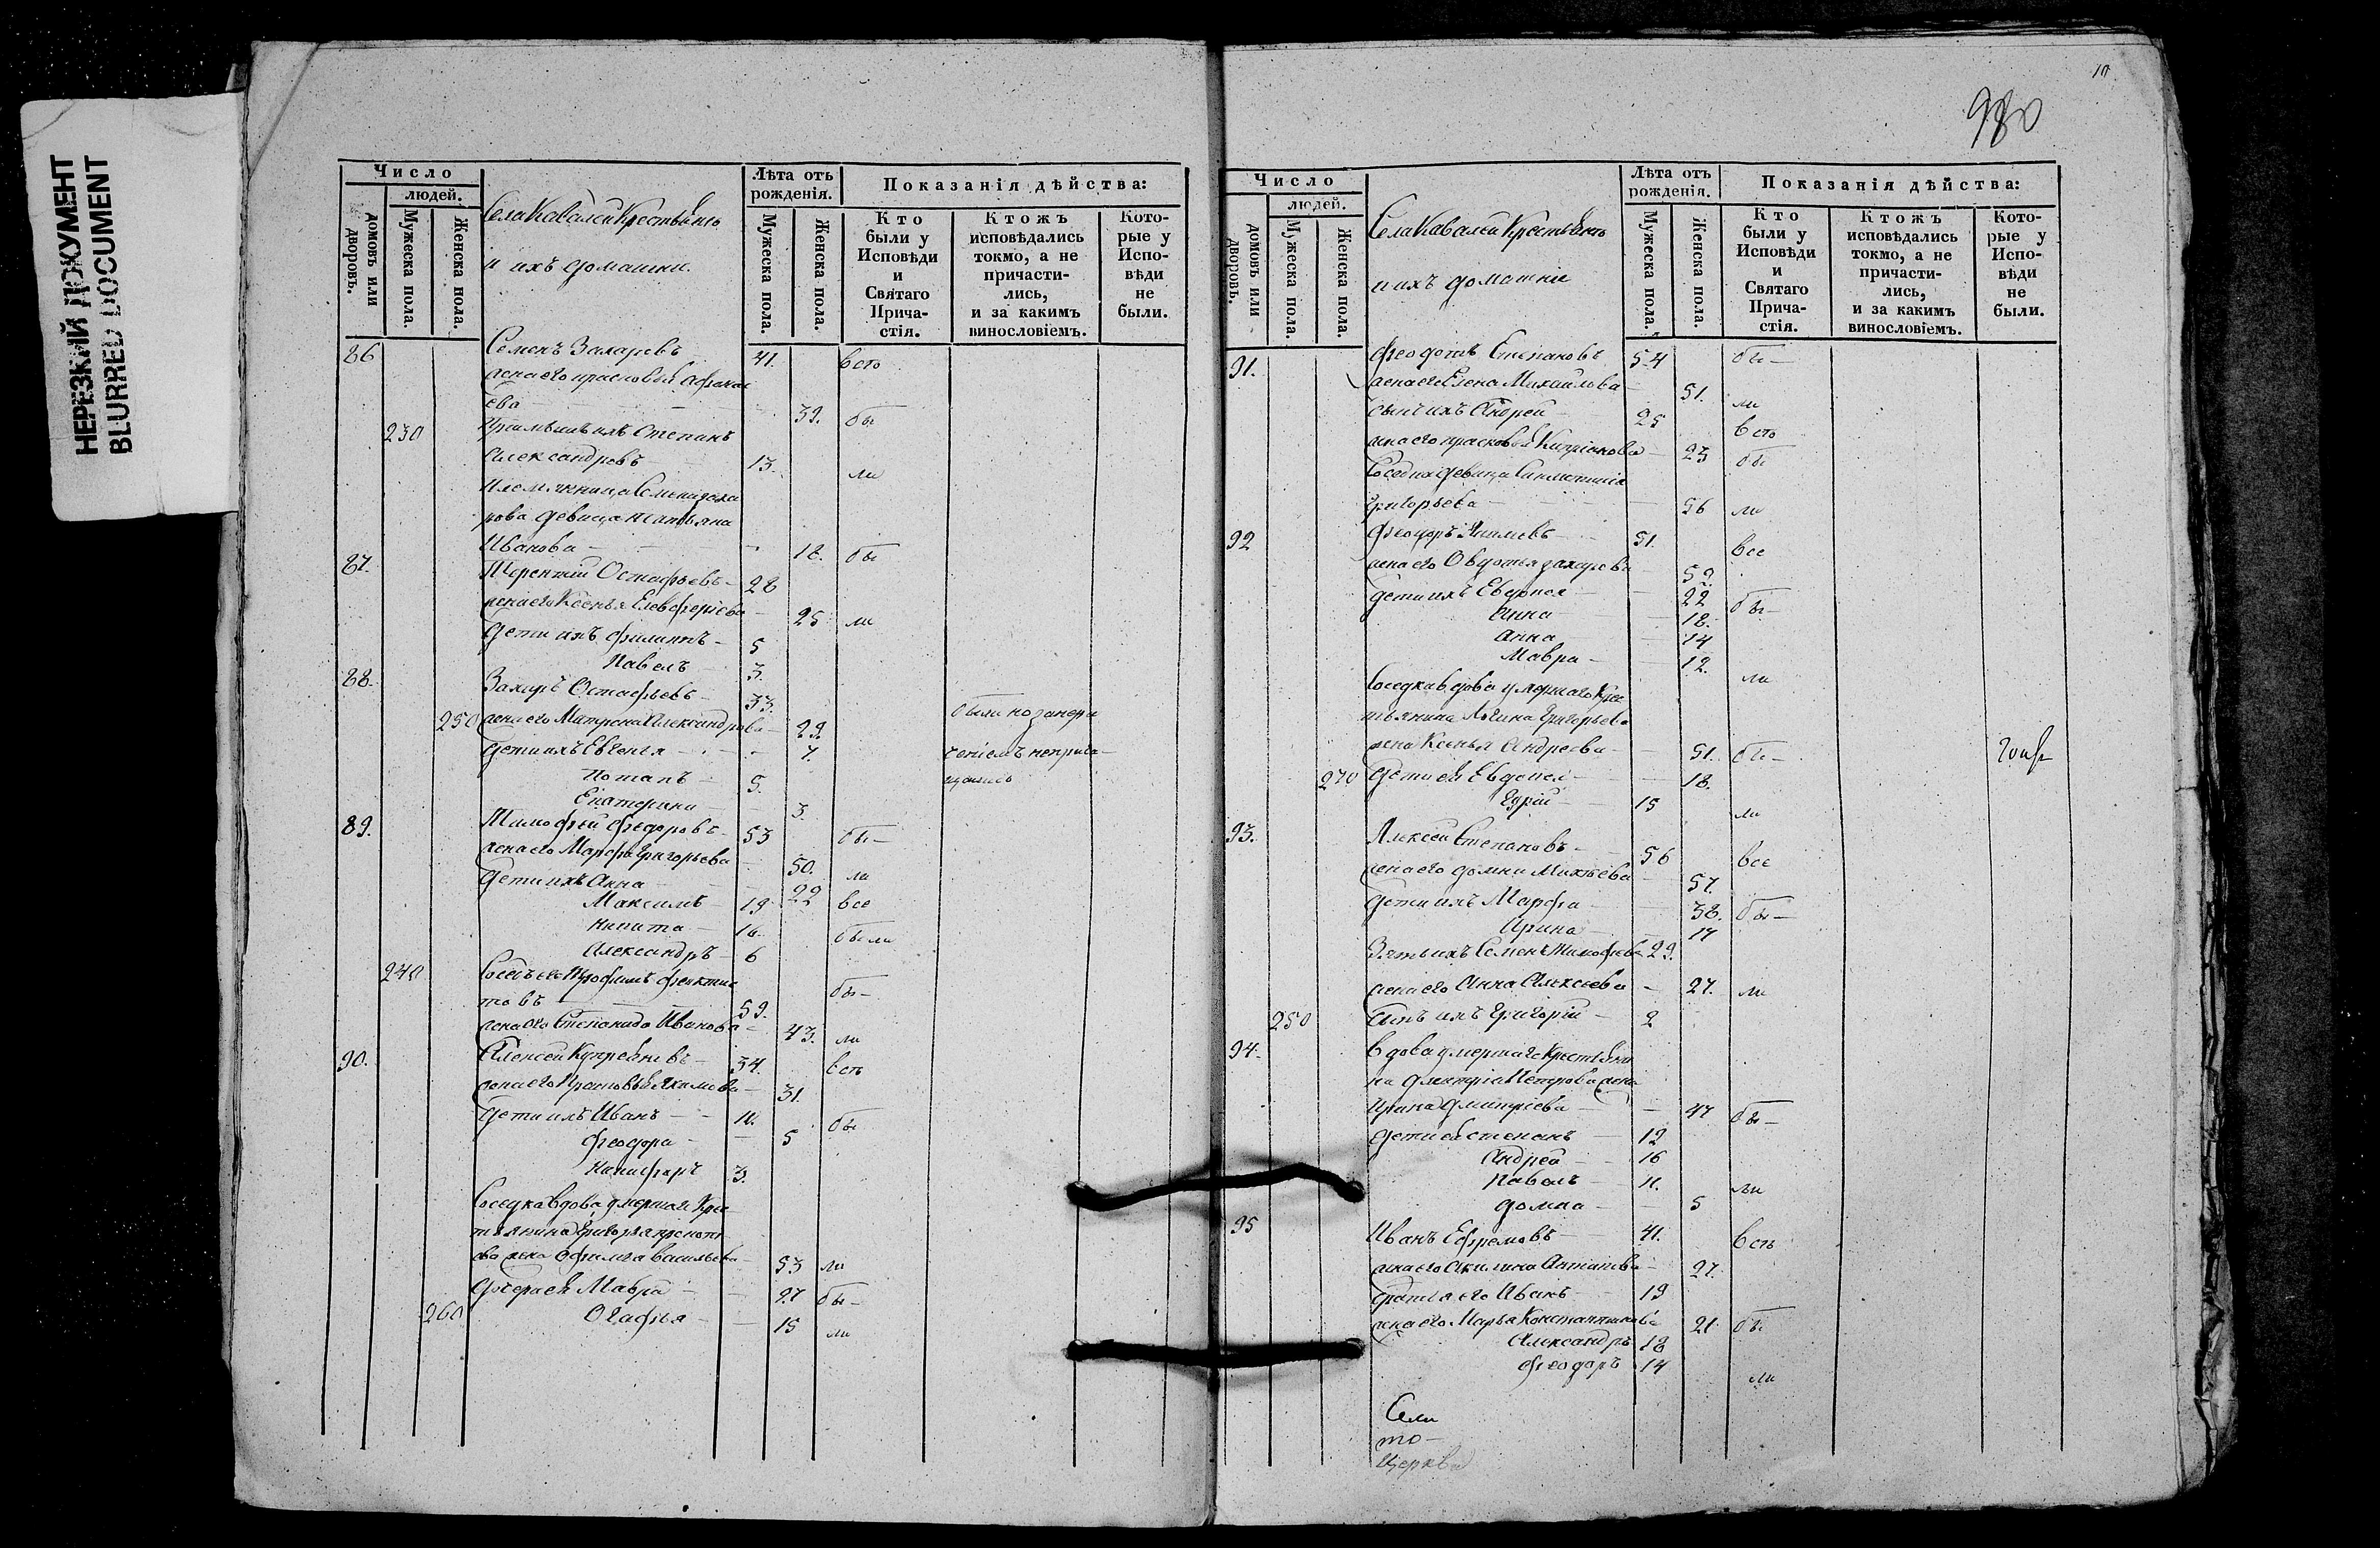 НЕРЕЗКИЙ ДОКУМЕНТ
BLURRED DOCUMENT
Число
людей.
домовъ или дворовъ.
Мужеска пола.
Женска пола.
Села Кавалей Крестьянъ
и ихъ домашни.
Лѣта отъ рожденія.
Мужеска пола.
Женска пола.
Показанія дѣйства:
Кто были у Исповѣди и Святаго Причастія.
Ктожъ исповѣдались токмо, а не причастились, и за какимъ винословіемъ.
Которые у Исповѣди не были.
86 Семенъ Захаровъ 41. всѣ
жена его Прасковья Афонас
ева 39. бы
230 Степанъ
Александровъ 13. ли
Племянница Семена Заха
рова девица Татьяна
Иванова 18. бы
87. Терентий Остафьевъ 28
жена его Ксенья Елевферіева 25 ли
Дети ихъ Филиппъ 5
Павелъ 3.
88. Захаръ Остафьевъ 33.
250 жена его Матрена Александрова 29. были
Дети ихъ Евгенья 7.
Потапъ 5.
Екатерина 3.
89. Тимофей Федоровъ 53 бы
жена его Марфа Григорьева 50. ли
Дети ихъ Анна 22
Максимъ 19 все
Никита 16. были
Александръ 6
240 Трофимъ Феоктис
товъ 59. бы
жена его Степанида Иванова 43. ли
90. Алексей Купреяновъ 34. всѣ
жена его Прасковья Якимова 31.
Дети ихъ Иванъ 10. бы
Феодора 5
Никифоръ 3.
Соседка вдова умершаго Крес
тьянина Григорья
жена Офимья Васильева 53 ли
Дочери ея Мавра 27 бы
260 Огафья 15 ли
10
980
Число
людей.
домовъ или дворовъ.
Мужеска пола.
Женска пола.
Села Кавалей Крестьянъ
и ихъ домашни
Лѣта отъ рожденія.
Мужеска пола.
Женска пола.
Показанія дѣйства:
Кто были у Исповѣди и Святаго Причастія.
Ктожъ исповѣдались токмо, а не причастились, и за какимъ винословіемъ.
Которые у Исповѣди не были.
91. Феодотъ Степановъ 54 бы
жена его Елена Михайлова 51. ли
сынъ ихъ Андрей 25 всѣ
жена его Прасковья Кипріанова 23 бы
Соседка девица
Григорьева 56 ли
92 Феодоръ 51. все
жена его Овдотья Захарова 52.
Дети ихъ Евдокея 22 бы
Анна 18.
Анна 14
Мавра 12. ли
Соседка вдова умершаго Крес
тьянина Логина Григорьева
жена Ксенья Андреева 51. бы
270 Дети ея Евдокея 18.
15 ли
93. Алексей Степановъ 56 все
жена его Домна Михеева 57.
Дети ихъ Марфа 38. бы
Ирина 17
Зять ихъ Семенъ Тимофеевъ 29.
жена его Анна Алексеева 27. ли
250 Сынъ ихъ Григорій 2
94. Вдова умершаго Крестьяни
на Дмитрія Петрова жена
Ирина Дмитріева 47 бы
Дети ея Степанъ 19
Андрей 16
Павелъ 11. ли
Домна 5
95 Иванъ Ефремовъ 41. всѣ
жена его Акилина Антипова 27.
братья его Иванъ 19
жена его Марья Константинова 21 бы
Александръ 18
Феодоръ 14 ли
Села
то
Церкви